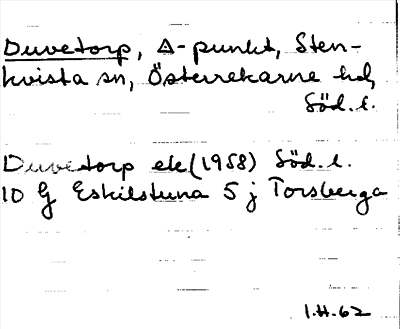 Duvetorp, △-punkt, Sten-
kvista sn, Österrekarne hd,
Söd. l.
Duvetorp ek (1958) Söd. l.
10 G Eskilstuna 5 j Torsberga
I.H.-62